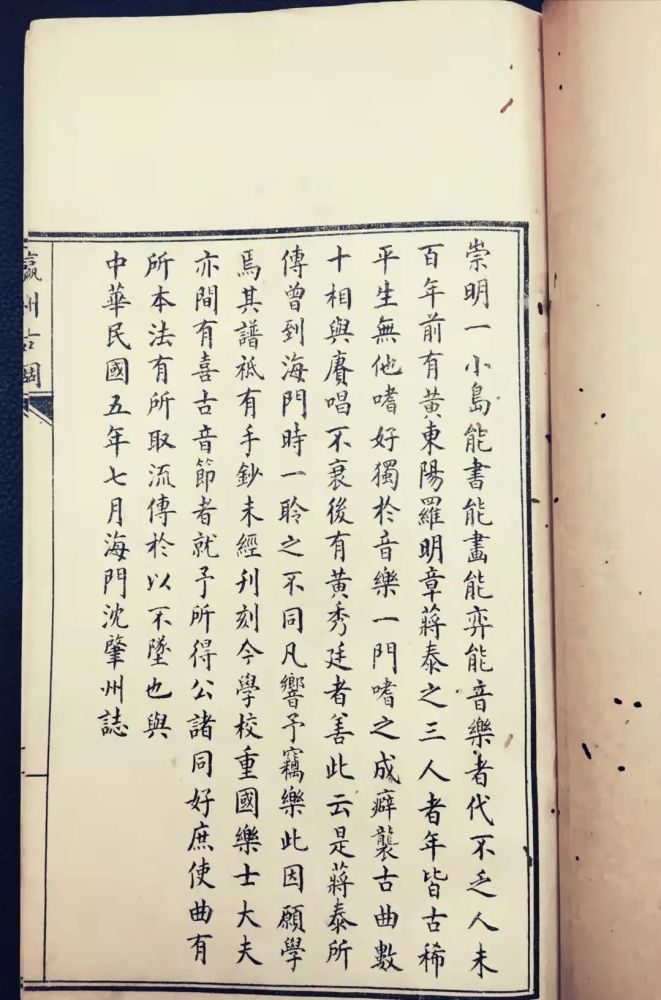 崇明一小島能書能畫能弈能音樂者代不乏人未
百年前有黃東陽羅明章蔣泰之三人者年皆古稀
平生無他嗜好獨於音樂一門嗜之成癖襲古曲數
十相與賡唱不衰後有黃秀廷者善此云是蔣泰所
傳曾到海門時一聆之不同凡響予竊樂此因願學
焉其譜祇有手鈔未經刊刻今學校重國樂士大夫
亦間有喜古音節者就予所得公諸同好庶使曲有
所本法有所取流傳於以不墜也與
中華民國五年七月海門沈肇州誌
瀛州古調